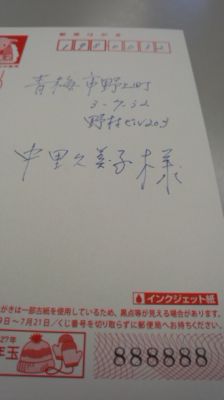 郵便はがき
青梅市野上町
3-7-32
野村ビル203
中里久美子様
インクジェット紙
がきは一部古紙を使用しているため、黒点等が見える場合があります。
9日〜7月21日/くじ番号を切り取らずに郵便局へお持ちください。
27年
年玉
888888